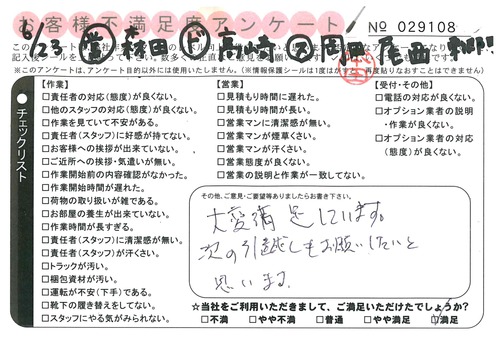 お客様不満足度アンケート
No 029108
8/23 森田 ド 高崎 ス 岡田 尾西
※このアンケートは、アンケート目的以外には使用いたしません。
チェックリスト
【作業】
□責任者の対応(態度)が良くない。
□他のスタッフの対応(態度)が良くない。
□作業を見ていて不安がある。
□責任者(スタッフ)に好感が持てない。
□お客様への挨拶が出来ていない。
□ご近所への挨拶・気遣いが無い。
□作業開始前の内容確認がなかった。
□作業開始時間が遅れた。
□荷物の取り扱いが雑である。
□お部屋の養生が出来ていない。
□作業時間が長すぎる。
□責任者(スタッフ)に清潔感が無い。
□責任者(スタッフ)が汗くさい。
□トラックが汚い。
□梱包資材が汚い。
□運転が不安(下手)である。
□靴下の履き替えをしてない。
□スタッフにやる気がみられない。
【営業】
□見積もり時間に遅れた。
□見積もり時間が長い。
□営業マンに清潔感が無い。
□営業マンが煙草くさい。
□営業マンが汗くさい。
□営業態度が良くない。
□営業の説明と作業が一致してない。
【受付・その他】
□電話の対応が良くない。
□オプション業者の説明
・作業が良くない。
□オプション業者の対応
(態度)が良くない。
その他、ご意見・ご要望等ありましたらお書き下さい。
大変満足しています。
次の引越しもお願いしたいと
思います。
☆当社をご利用いただきまして、ご満足いただけたでしょうか?
□不満 □やや不満 □普通 □やや満足 □満足